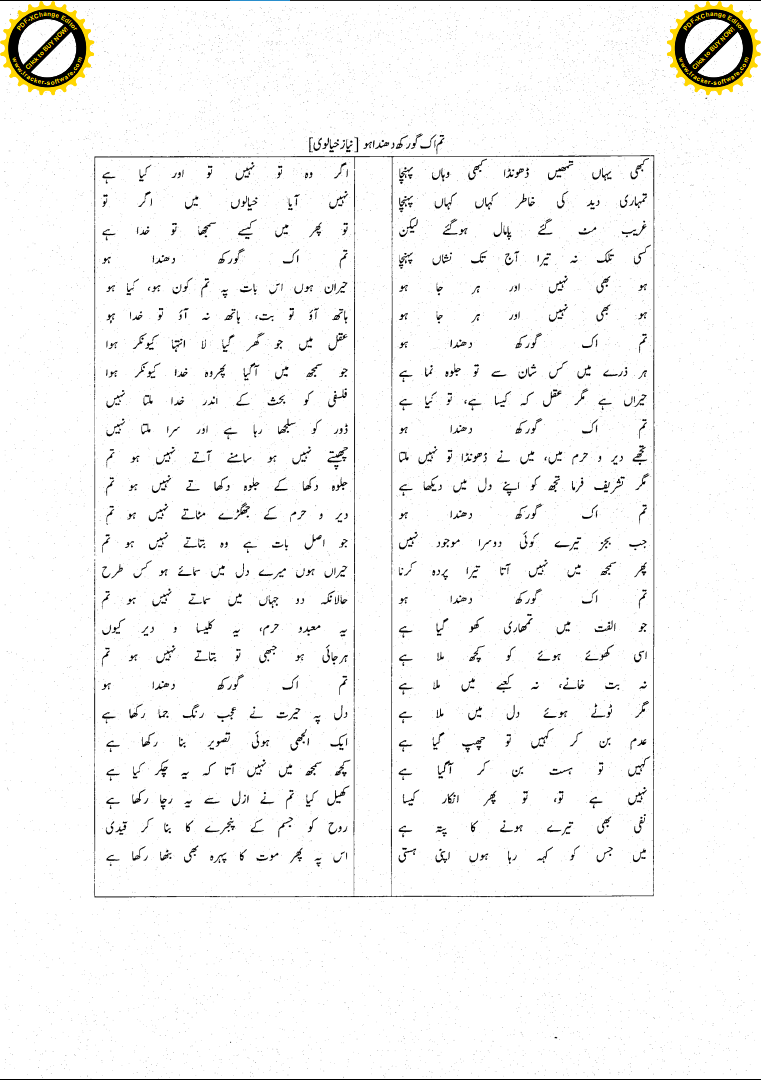 PDF-XChange Editor
Click to BUY NOW!
www.tracker-software.com
PDF-XChange Editor
Click to BUY NOW!
www.tracker-software.com
تم اک گورکھ دھندا ہو [نیاز خیالوی]
کبھی یہاں تمھیں ڈھونڈا کبھی وہاں پہنچا
تمہاری دید کی خاطر کہاں کہاں پہنچا
غریب مٹ گئے پامال ہوگئے لیکن
کسی تلک نہ تیرا آج تک نشاں پہنچا
ہو بھی نہیں اور ہر جا ہو
ہو بھی نہیں اور ہر جا ہو
تم اک گورکھ دھندا ہو
ہر ذرے میں کس شان سے تو جلوہ نما ہے
حیراں ہے مگر عقل کہ کیسا ہے، تو کیا ہے
تم اک گورکھ دھندا ہو
تجھے دیر و حرم میں، میں نے ڈھونڈا تو نہیں ملتا
مگر تشریف فرما تجھ کو اپنے دل میں دیکھا ہے
تم اک گورکھ دھندا ہو
جب بجز تیرے کوئی دوسرا موجود نہیں
پھر سمجھ میں نہیں آتا تیرا پردہ کرنا
تم اک گورکھ دھندا ہو
جو الفت میں تمھاری کھو گیا ہے
اسی کھوئے ہوئے کو کچھ ملا ہے
نہ بت خانے، نہ کعبے میں ملا ہے
مگر ٹوٹے ہوئے دل میں ملا ہے
عدم بن کر کہیں تو چھپ گیا ہے
کہیں تو ہست بن کر آگیا ہے
نہیں ہے تو، تو پھر انکار کیسا
نفی بھی تیرے ہونے کا پتہ ہے
میں جس کو کہہ رہا ہوں اپنی ہستی
اگر وہ تو نہیں تو اور کیا ہے
نہیں آیا خیالوں میں اگر تو
تو پھر میں کیسے سمجھا تو خدا ہے
تم اک گورکھ دھندا ہو
حیران ہوں اس بات پہ تم کون ہو، کیا ہو
ہاتھ آؤ تو بت، ہاتھ نہ آؤ تو خدا ہو
عقل میں جو گھر گیا لا انتہا کیونکر ہوا
جو سمجھ میں آگیا پھروہ خدا کیونکر ہوا
فلسفی کو بحث کے اندر خدا ملتا نہیں
ڈور کو سلجھا رہا ہے اور سرا ملتا نہیں
چھپتے نہیں ہو سامنے آتے نہیں ہو تم
جلوہ دکھا کے جلوہ دکھا تے نہیں ہو تم
دیر و حرم کے جھگڑے مٹاتے نہیں ہو تم
جو اصل بات ہے وہ بتاتے نہیں ہو تم
حیراں ہوں میرے دل میں سمائے ہو کس طرح
حالانکہ دو جہاں میں سماتے نہیں ہو تم
یہ معبدو حرم، یہ کلیسا و دیر کیوں
ہرجائی ہو جبھی تو بتاتے نہیں ہو تم
تم اک گورکھ دھندا ہو
دل پہ حیرت نے عجب رنگ جما رکھا ہے
ایک الجھی ہوئی تصویر بنا رکھا ہے
کچھ سمجھ میں نہیں آتا کہ یہ چکر کیا ہے
کھیل کیا تم نے ازل سے یہ رچا رکھا ہے
روح کو جسم کے پنجرے کا بنا کر قیدی
اس پہ پھر موت کا پہرہ بھی بٹھا رکھا ہے